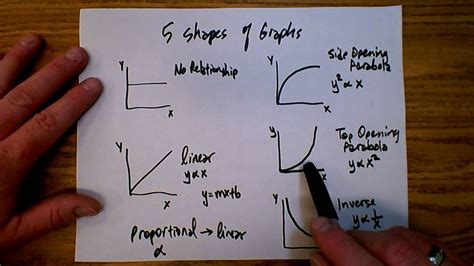 5 Shapes of Graphs
Y
No Relationship
X
Y
Side Opening
Parabola
y² ∝ x
X
Y
linear
y∝x
y=mx+b
X
Y
Top Opening
Parabola
y ∝ x²
X
Proportional → linear
∝
Y
Inverse
y ∝ 1/x
X